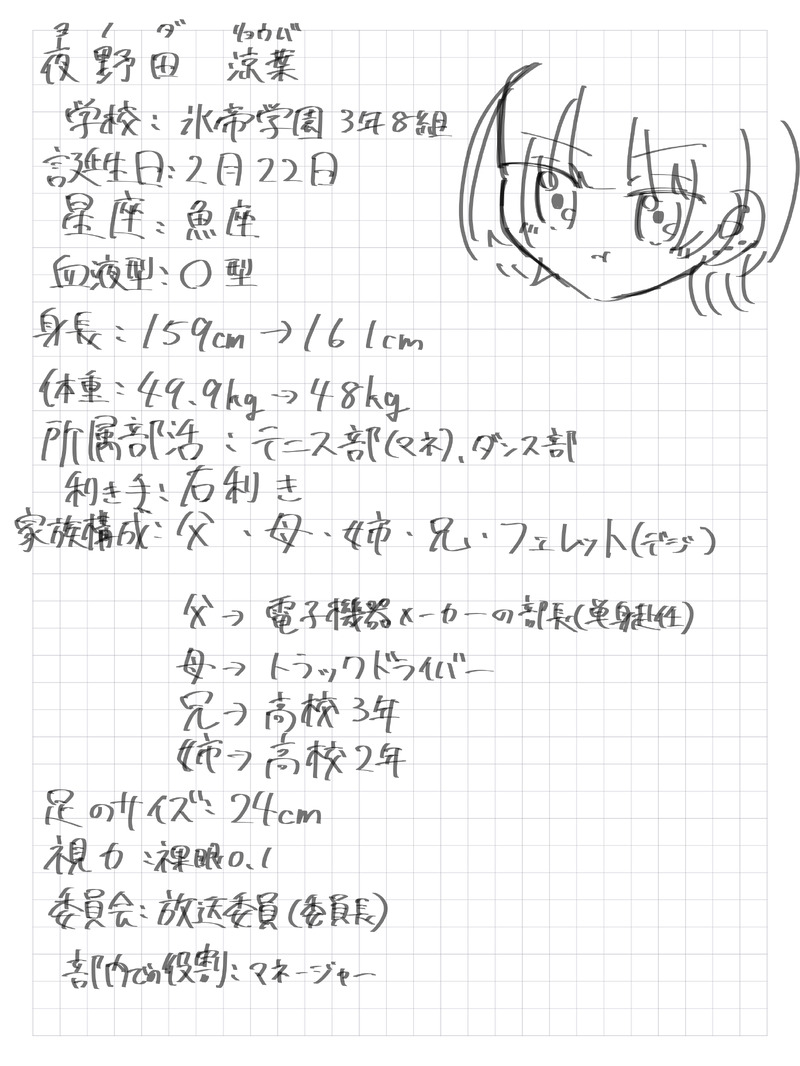 ヨノダ リョウバ
夜野田 涼葉
学校：氷帝学園3年8組
誕生日：2月22日
星座：魚座
血液型：O型
身長：159cm→161cm
体重：49.9kg→48kg
所属部活：テニス部(マネ)、ダンス部
利き手：右利き
家族構成：父・母・姉・兄・フェレット(デジ)
父→電子機器メーカーの部長(単身赴任)
母→トラックドライバー
兄→高校3年
姉→高校2年
足のサイズ：24cm
視力：裸眼0.1
委員会：放送委員(委員長)
部内での役割：マネージャー